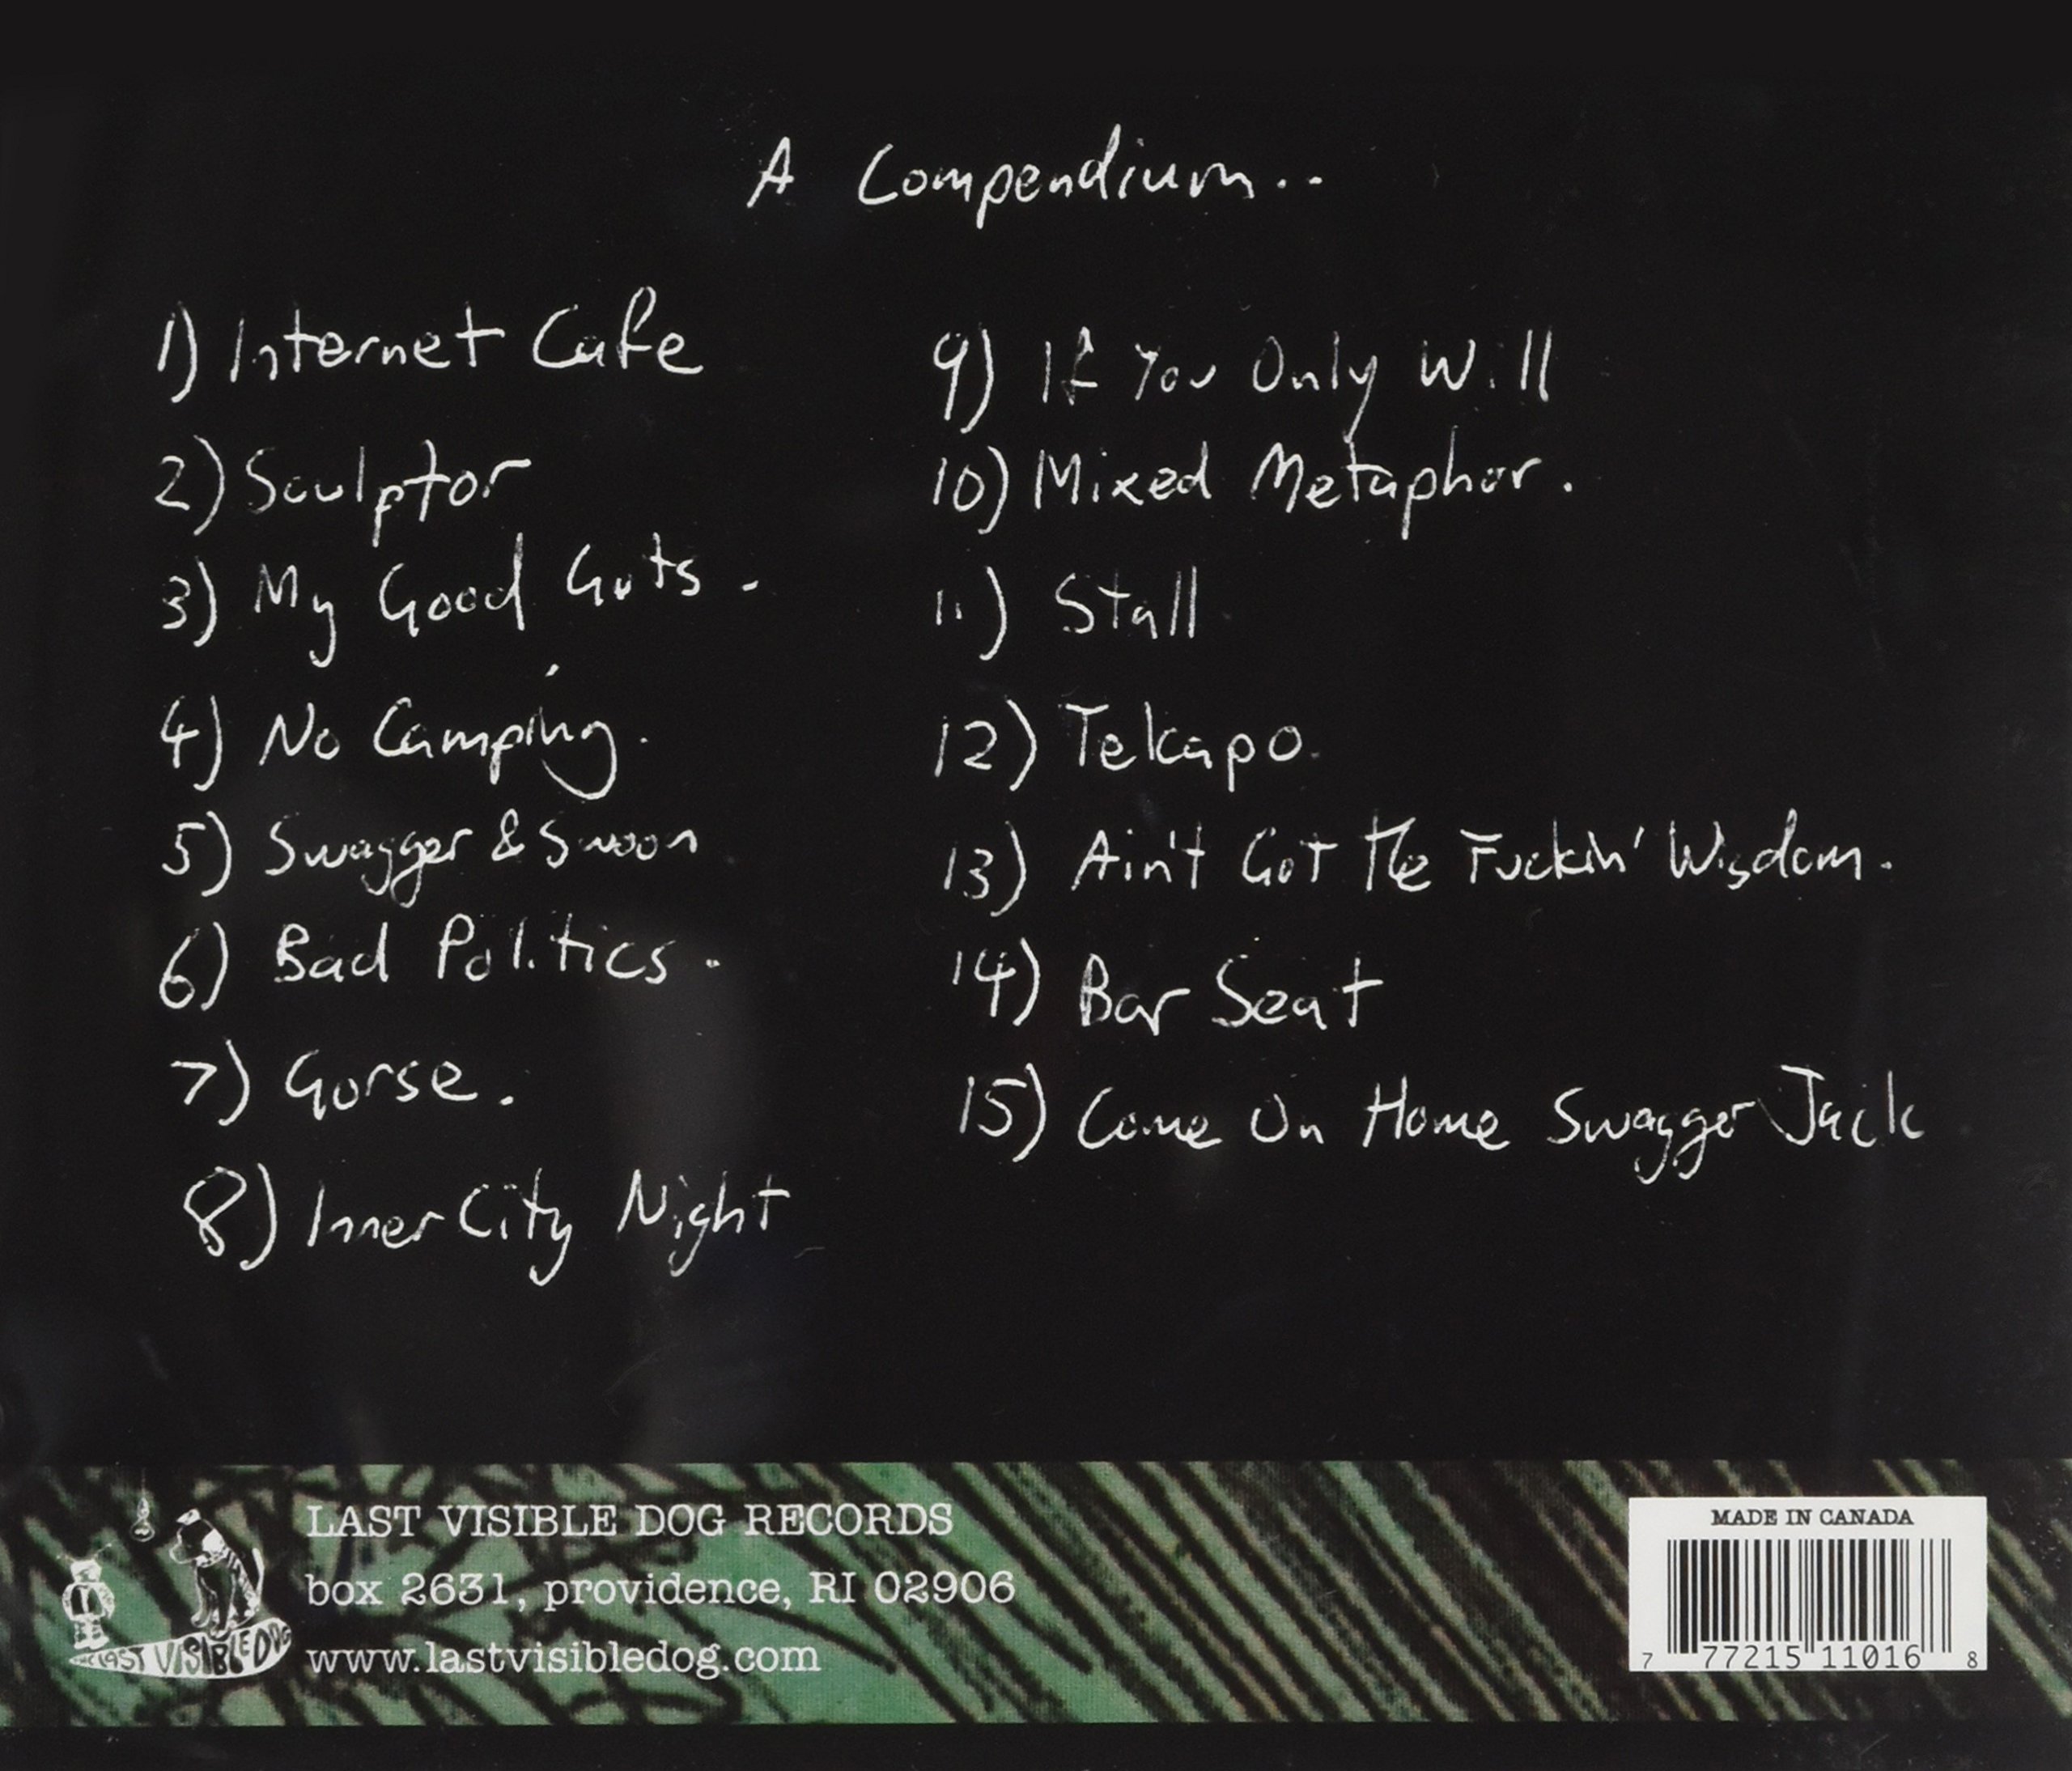 A Compendium..
1) Internet Cafe
2) Sculptor
3) My Good Guts.
4) No Camping.
5) Swagger & Swoon
6) Bad Politics.
7) Gorse.
8) Inner City Night
9) If You Only Will
10) Mixed Metaphor.
11) Stall
12) Tekapo.
13) Ain't Got The Fuckin' Wisdom.
14) Bar Seat
15) Come On Home Swagger Jack
THE LAST VISIBLE DOG
LAST VISIBLE DOG RECORDS
box 2631, providence, RI 02906
www.lastvisibledog.com
MADE IN CANADA
7 77215 11016 8